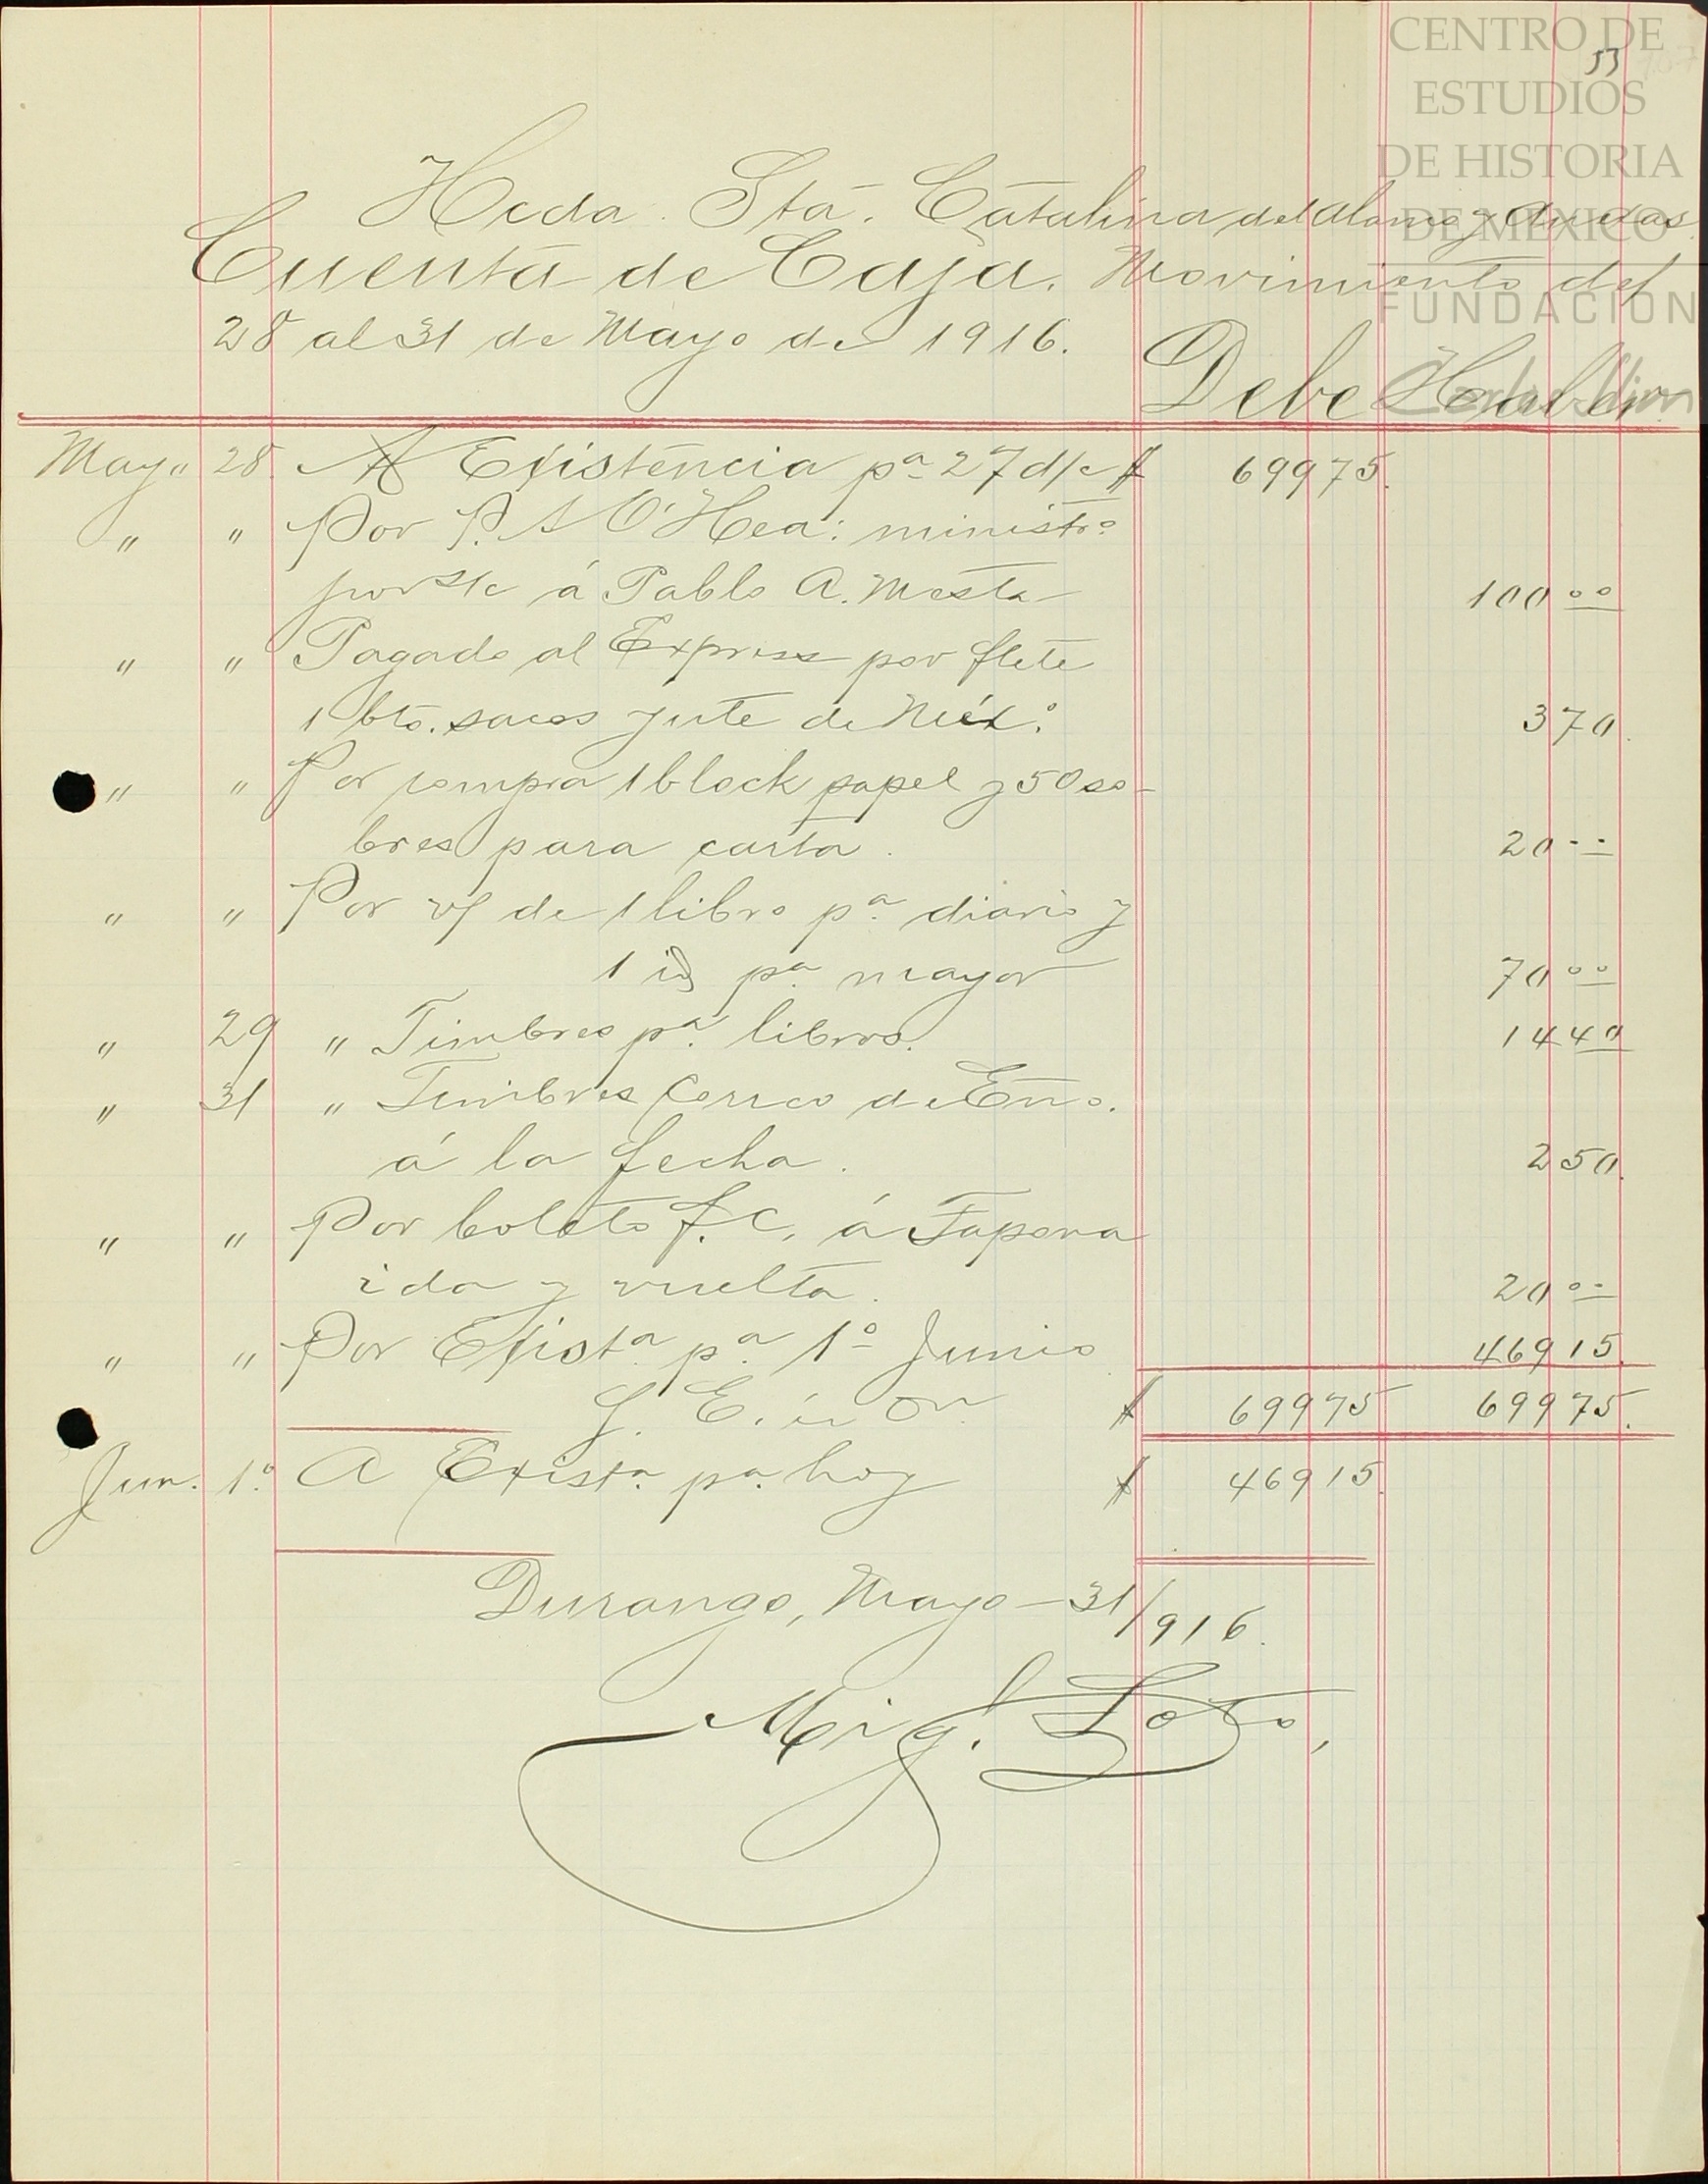 CENTRO DE
ESTUDIOS
DE HISTORIA
DE MÉXICO
FUNDACIÓN
Carlos Slim
53
Hcda. Sta. Catalina del Alamo y
Cuenta de Caja. Movimiento del
28 al 31 de Mayo de 1916.
Debe Haber
Mayo 28. A Existencia pa 27 d/c $ 69975.
" " Por P. A O'Hea: ministro
por s/c á Pablo A. Mesta 100 00
" " Pagado al Express por flete
1 bto. sacos yute de Méxo. 370.
" " Por compra 1 block papel y 50 so-
bres para carta. 20 00
" " Por vf de 1 libro pa. diario y
1 id pa. mayor 70 00
" 29 " Timbres pa. libros. 1440
" 31 " Timbres Correo de Eno.
á la fecha. 250.
" " Por boleto f.c. á Tapona
ida y vuelta. 20 00
" " Por Exista. pa. 1o Junio 46915.
S. E. ú On. $ 69975 69975.
Jun. 1o. A Exista. pa. hoy $ 46915.
Durango, Mayo - 31/916.
Mig. Soto,